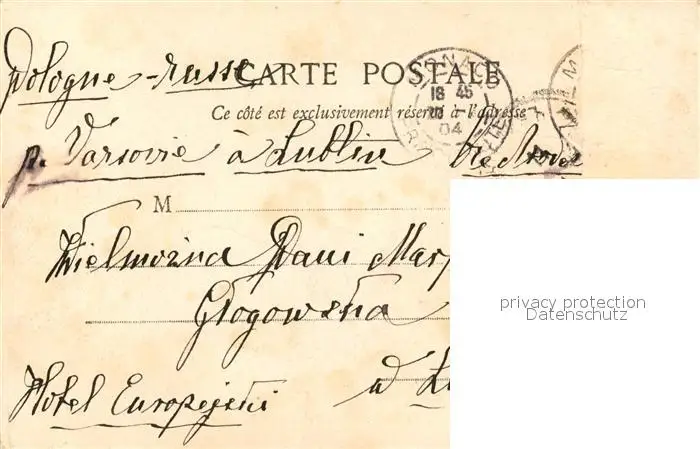 Pologne-russe
CARTE POSTALE
Ce côté est exclusivement réservé à l'adresse
18 45
04
p. Varsovie à Lublin
M
Wielmożna Pani
Głogowska
Hotel Europejski w
privacy protection
Datenschutz